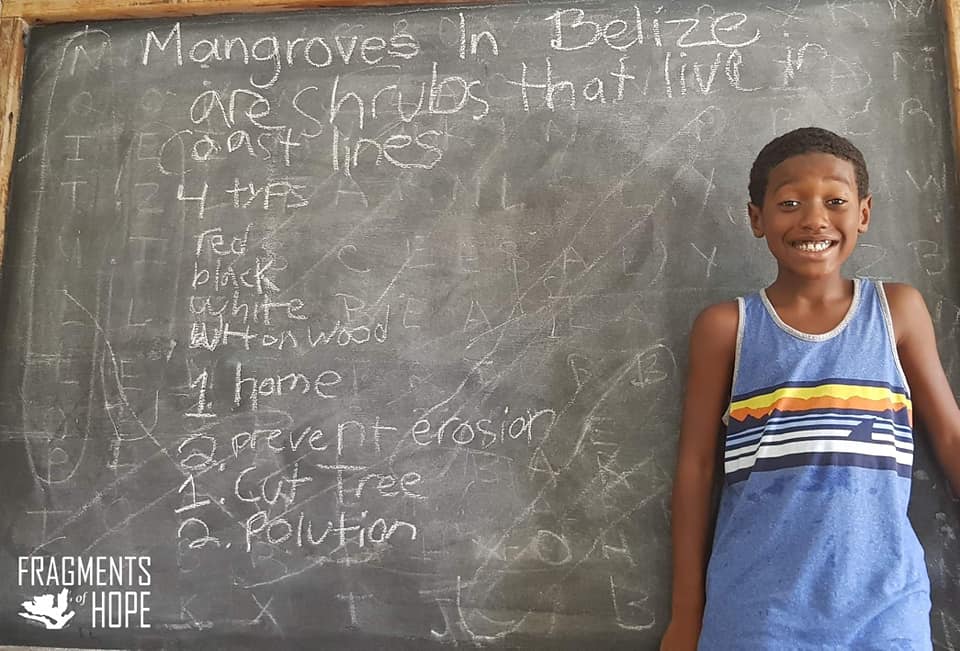 Mangroves In Belize
are shrubs that live in
coast lines
4 typs
red
black
white
buttonwood
1. home
2. prevent erosion
1. Cut Tree
2. Polution
FRAGMENTS
of HOPE